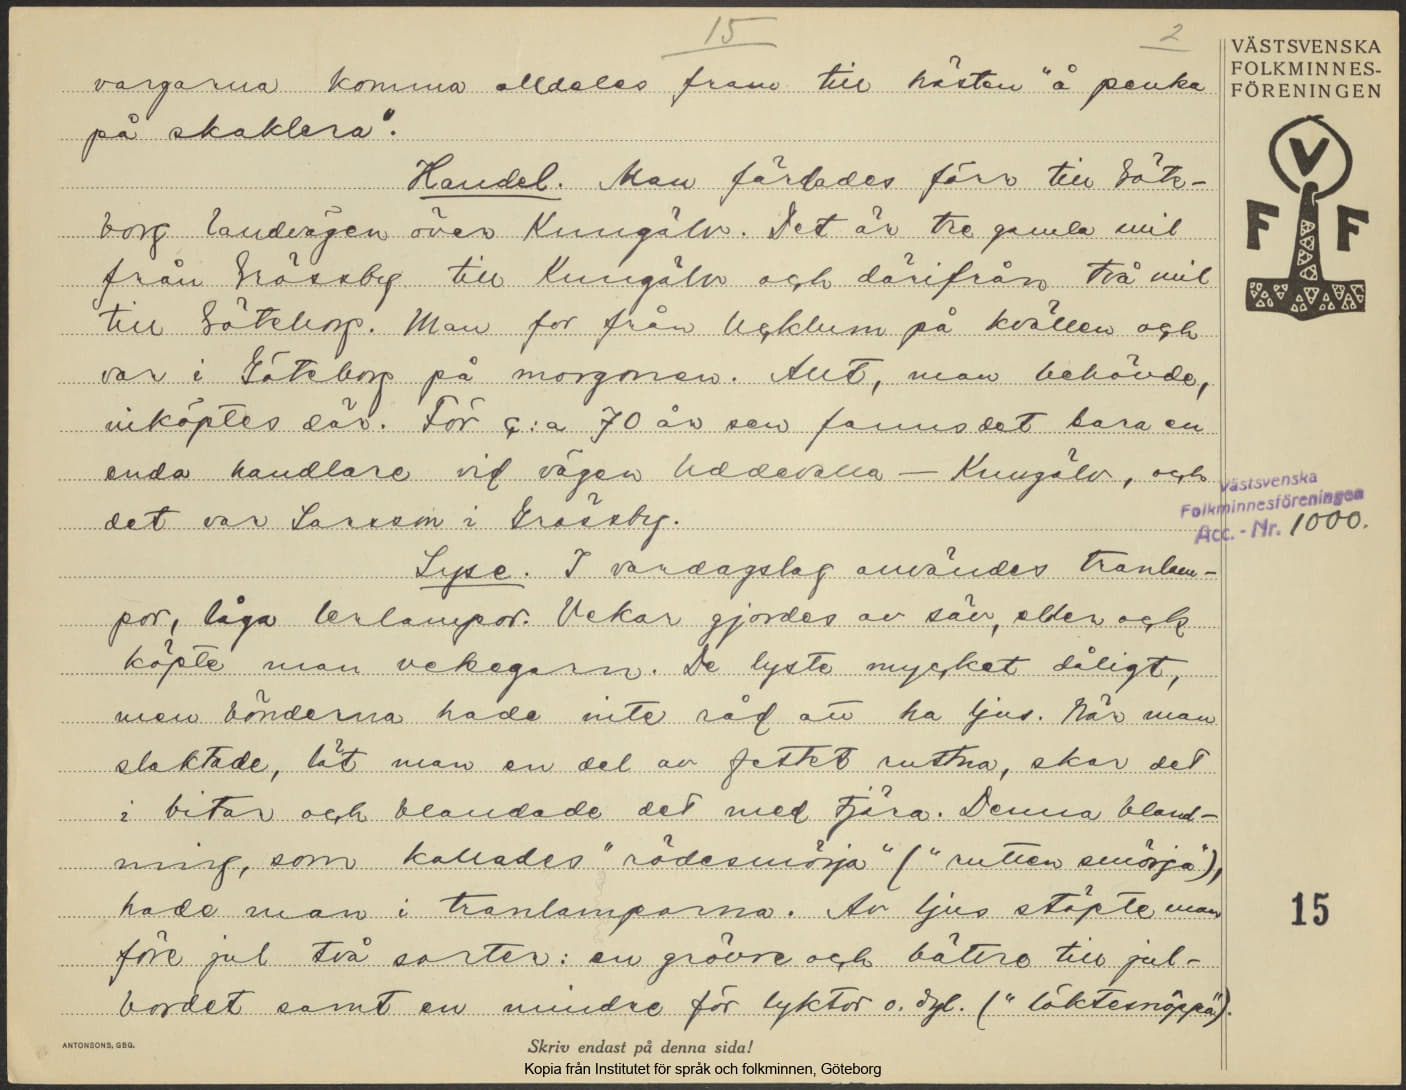 15
2
VÄSTSVENSKA
FOLKMINNES-
FÖRENINGEN
V
F F
vargarna komma alldeles fram till hästen "å penka
på skaklera".
Handel. Man färdades förr till Göte-
borg landvägen över Kungälv. Det är tre gamla mil
från Grössby till Kungälv och därifrån två mil
till Göteborg. Man for från Ucklum på kvällen och
var i Göteborg på morgonen. Allt, man behövde,
inköptes där. För c:a 70 år sen fanns det bara en
enda handlare vid vägen Uddevalla — Kungälv, och
det var Larsson i Grössby.
Västsvenska
Folkminnesföreningen
Acc. - Nr. 1000.
Lyse. I vardagslag användes tranlam-
por, låga lerlampor. Vekar gjordes av säv, eller och
köpte man vekegarn. De lyste mycket dåligt,
men bönderna hade inte råd att ha ljus. När man
slaktade, lät man en del av fettet ruttna, skar det
i bitar och blandade det med tjära. Denna bland-
ning, som kallades "rödesmörja" ("rutten smörja"),
hade man i tranlamporna. Av ljus stöpte man
före jul två sorter: en grövre och bättre till jul-
bordet samt en mindre för lyktor o. dyl. ("löktesnöppä").
15
ANTONSONS, GBG.
Skriv endast på denna sida!
Kopia från Institutet för språk och folkminnen, Göteborg